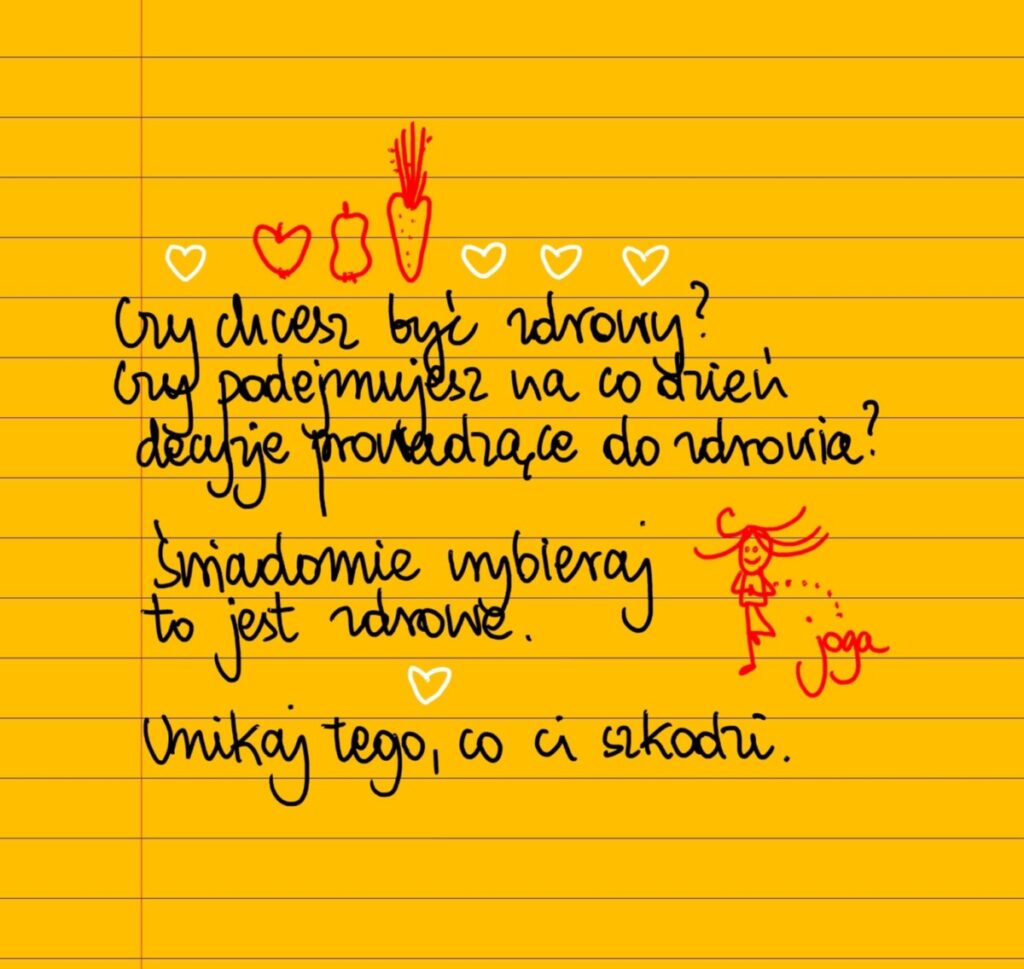 Czy chcesz być zdrowy?
Czy podejmujesz na co dzień
decyzje prowadzące do zdrowia?
Świadomie wybieraj
to jest zdrowe.
joga
Unikaj tego, co ci szkodzi.